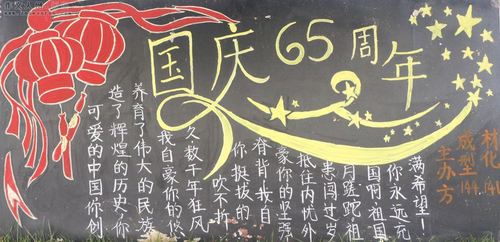 国庆65周年
可爱的中国你创
造了辉煌的历史你
养育了伟大的民族
我自豪你的悠
久数千年狂风
吹不折
你挺拔的
脊背我自
豪你的坚强
抵住内忧外
患闯过岁
月蹉跎祖
国啊祖国
你永远充
满希望！
主办方
成型144
材化141